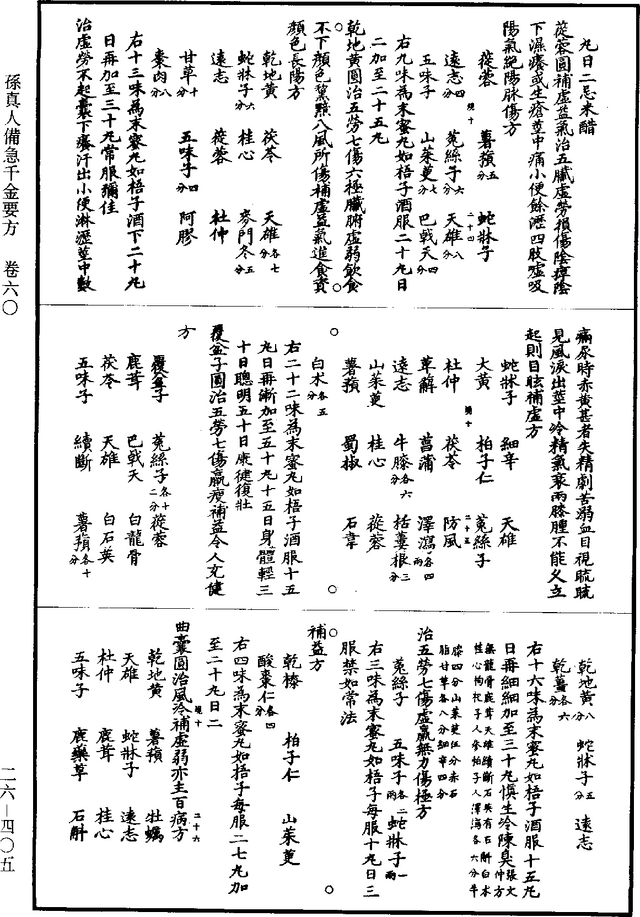 九日二忌米醋
蓯蓉圓補虛益氣治五臟虛勞損傷陰痺陰
下濕癢或生瘡莖中痛小便餘瀝四肢噓吸
陽氣絕陽脉傷方
蓯蓉 薯蕷分五 蛇牀子
遠志分四 菟絲子分六 天雄分八
五味子 山茱萸分七 巴戟天分四
右九味為末蜜丸如梧子酒服二十丸日
二加至二十五丸
乾地黃圓治五勞七傷六極臟腑虛弱飲食
不下顏色黧黯八風所傷補虛益氣進食資
顏色長陽方
乾地黃 茯苓 天雄各七分
蛇牀子分六 桂心 麥門冬分五
遠志 蓯蓉 杜仲
甘草分十 五味子分四 阿膠
棗肉分八
右十三味為末蜜丸如梧子酒下二十丸
日再加至三十丸常服彌佳
治虛勞不起囊下癢汗出小便淋瀝莖中數
痛尿時赤黃甚者失精劇苦溺血目視䀮䀮
見風淚出莖中冷精氣衰兩膝腫不能久立
起則目眩補虛方
蛇牀子 細辛 天雄
大黃 柏子仁 菟絲子
杜仲 茯苓 防風
萆薢 菖蒲 澤瀉各四兩
遠志 牛膝各六分 括蔞根三分
山茱萸 桂心 蓯蓉
薯蕷 蜀椒 石韋
白朮各五分
右二十二味為末蜜丸如梧子酒服十五
丸日再漸加至五十丸十五日身體輕三
十日聰明五十日康健復壯
覆盆子圓治五勞七傷羸瘦補益令人充健
方
覆盆子 菟絲子各十二分 蓯蓉
鹿茸 巴戟天 白龍骨
茯苓 天雄 白石英
五味子 續斷 薯蕷各十分
乾地黃分八 蛇牀子分五 遠志
乾薑各六分
右十六味為末蜜丸如梧子酒服十五丸
日再細細加至三十丸慎生冷陳臭張文仲方
無龍骨鹿茸天雄續斷石英有石斛白朮
桂心枸杞子人參柏子人澤瀉各六分牛
膝四分山茱萸五分赤石
脂甘草各八分細辛四分
治五勞七傷虛羸無力傷極方
菟絲子 五味子各二兩 蛇牀子一兩
右三味為末蜜丸如梧子每服十丸日三
服禁如常法
補益方
乾棗 柏子仁 山茱萸
酸棗仁各四分
右四味為末蜜丸如梧子每服二七丸加
至二十丸日二
曲囊圓治風冷補虛弱亦主百病方
乾地黃 薯蕷 牡蠣
天雄 蛇牀子 遠志
杜仲 鹿茸 桂心
五味子 鹿藥草 石斛
孫真人備急千金要方 卷六〇
二六—四〇五